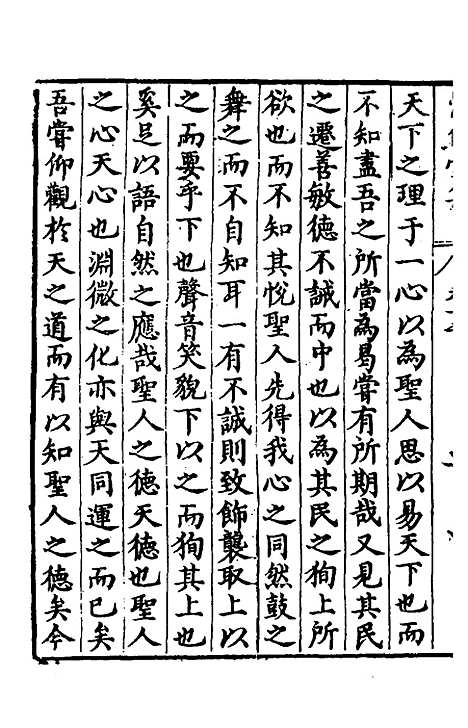 天下之理于一心以為聖人思以易天下也而
不知盡吾之所當為曷嘗有所期哉又見其民
之遷善敏德不誠而中也以為其民之狥上所
欲也而不知其悅聖人先得我心之同然鼓之
舞之而不自知耳一有不誠則致飾襲取上以
之而要乎下也聲音笑貌下以之而狥其上也
奚足以語自然之應哉聖人之德天德也聖人
之心天心也淵微之化亦與天同運之而已矣
吾嘗仰觀於天之道而有以知聖人之德矣今